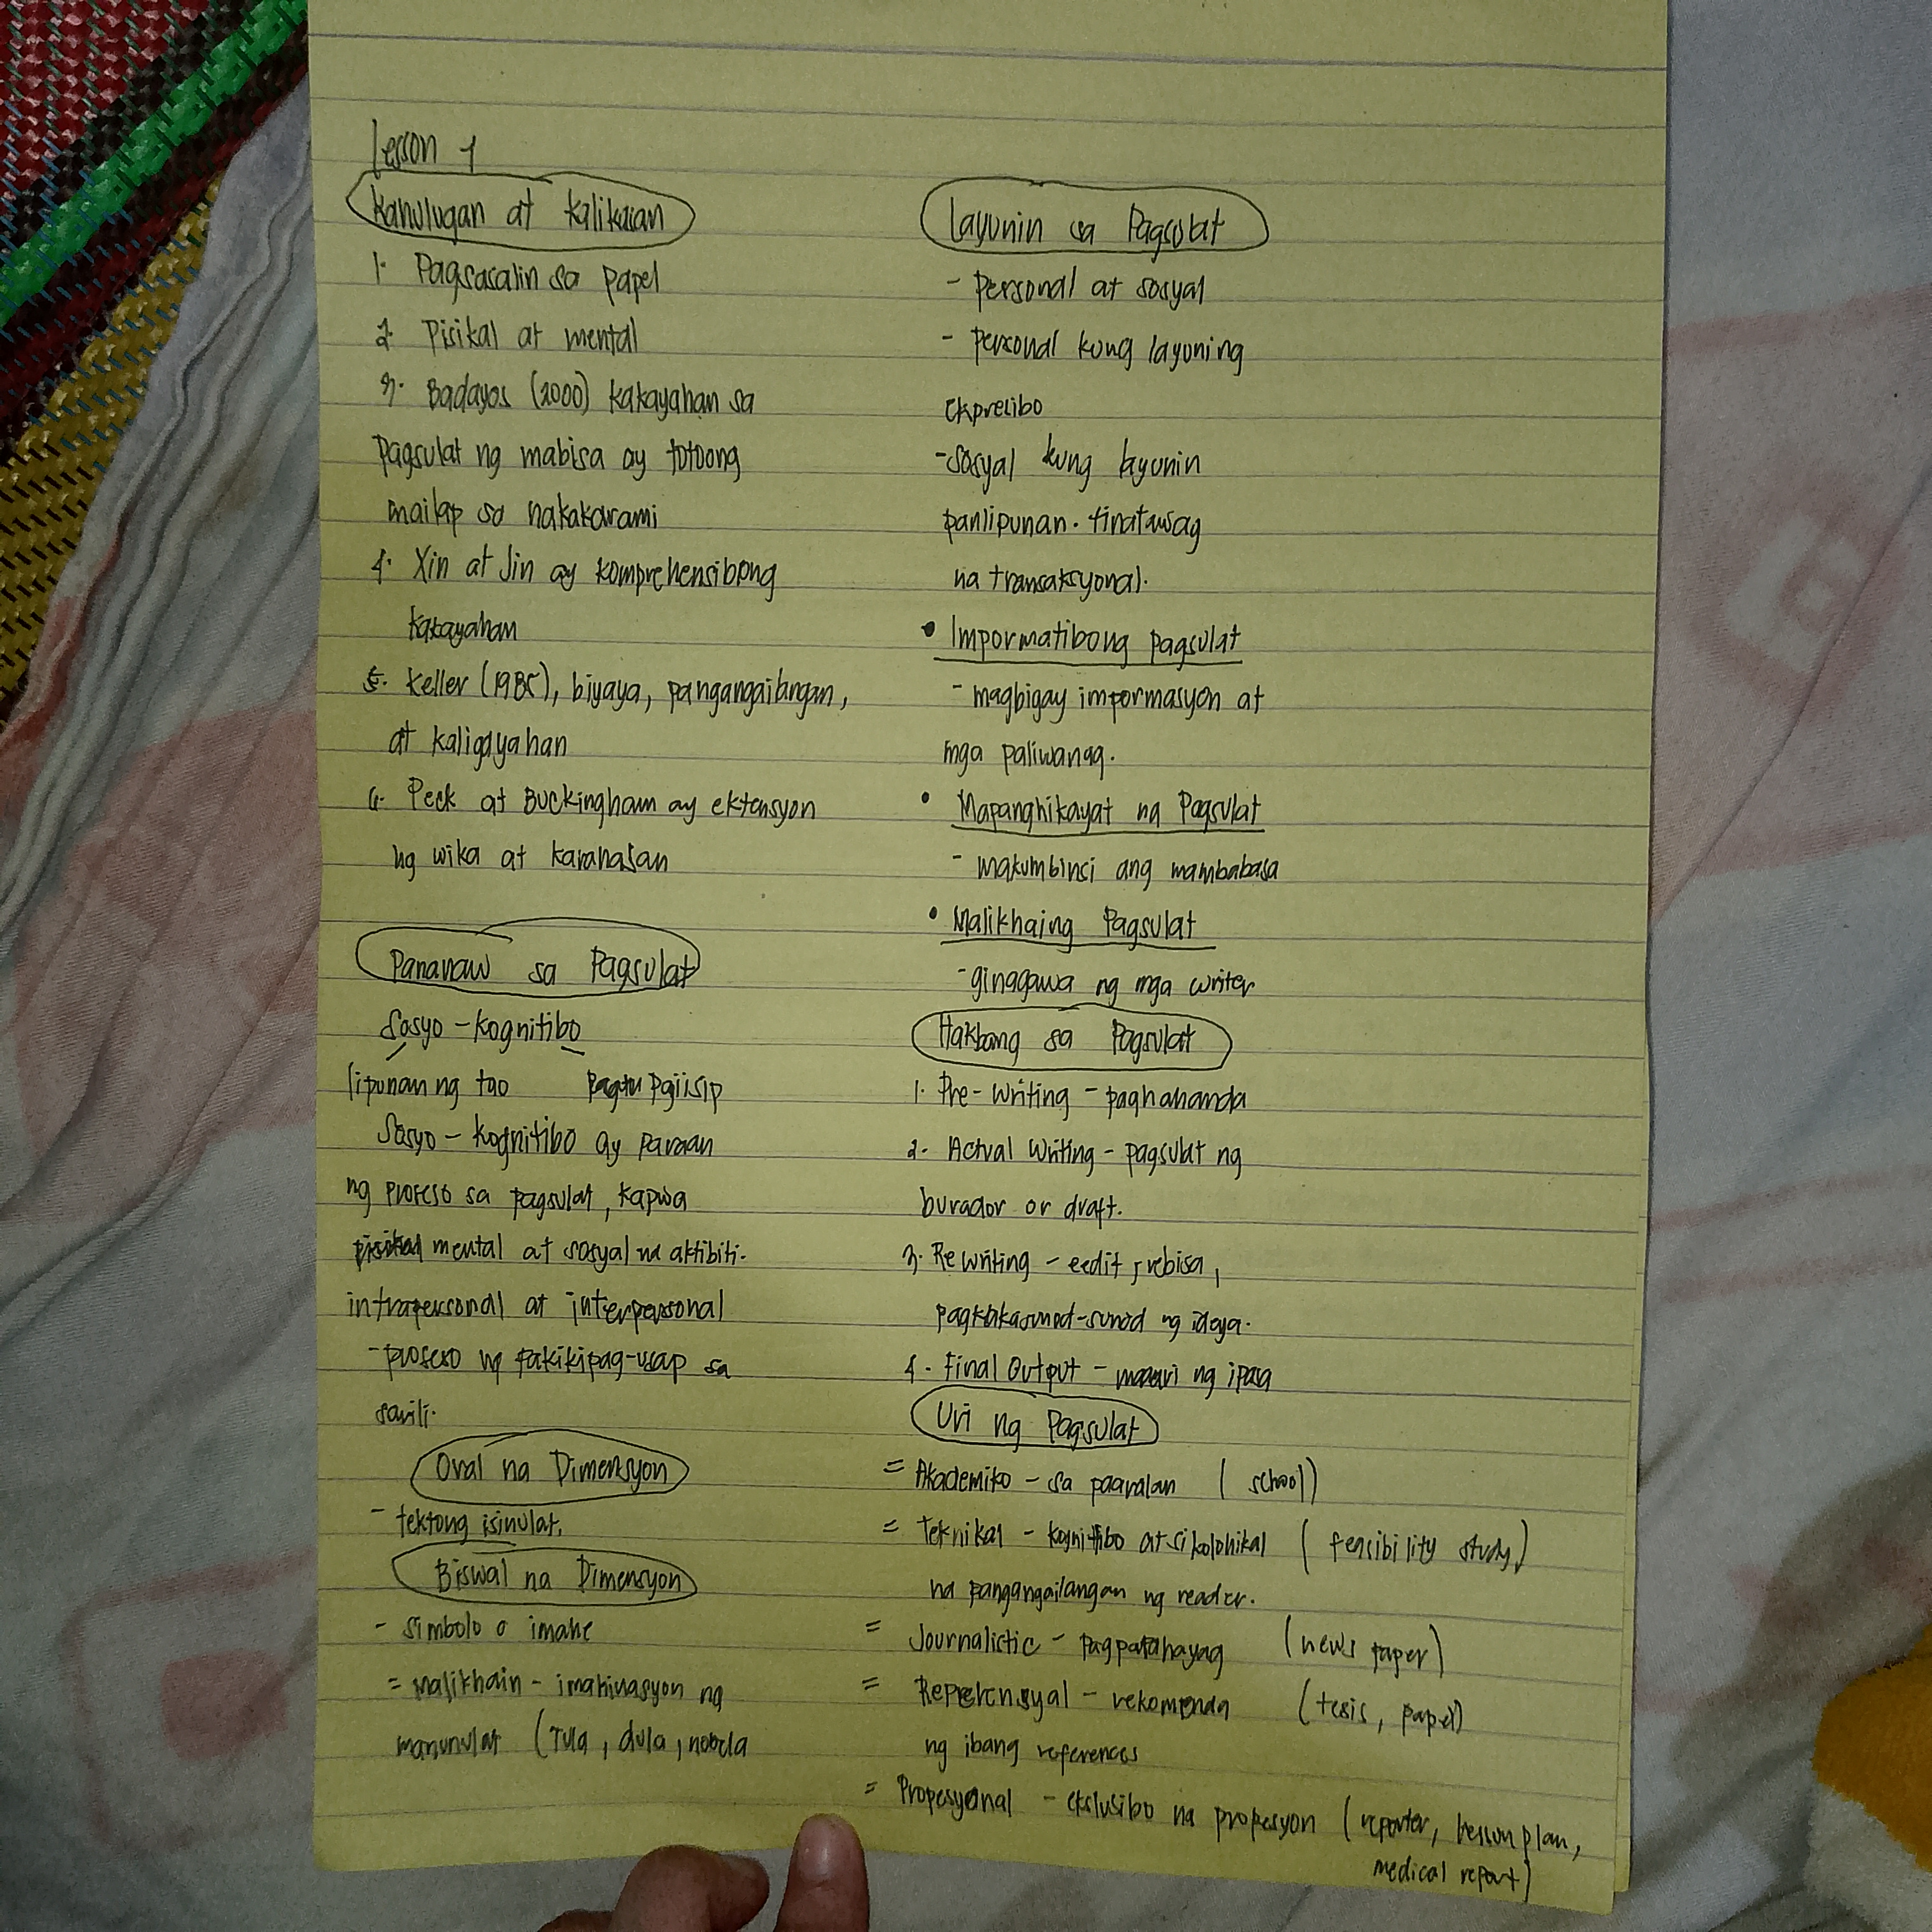 Lesson 1
Kahulugan at Kalikasan
1. Pagsasalin sa papel
2. Pisikal at mental
3. Badayos (2000) kakayahan sa
pagsulat ng mabisa ay totoong
mailap sa nakakarami
4. Xin at Jin ay komprehensibong
kakayahan
5. Keller (1985), biyaya, pangangailangan,
at kaligayahan
6. Peck at Buckingham ay ektensyon
ng wika at karanasan
Pananaw sa Pagsulat
Sosyo - kognitibo
lipunan ng tao pagiisip
Sosyo - kognitibo ay paraan
ng proseso sa pagsulat, kapwa
mental at sosyal na aktibiti.
intrapersonal at interpersonal
- proseso ng pakikipag-usap sa
sarili.
Oral na Dimensyon
- tektong isinulat.
Biswal na Dimensyon
- simbolo o imahe
= Malikhain - imahinasyon ng
manunulat (Tula, dula, nobela
Layunin sa Pagsulat
- personal at sosyal
- personal kung layuning
ekpresibo
- sosyal kung layunin
panlipunan. tinatawag
na transaksyonal.
• Impormatibong pagsulat
- magbigay impormasyon at
mga paliwanag.
• Mapanghikayat na Pagsulat
- makumbinsi ang mambabasa
• Malikhaing Pagsulat
- ginagawa ng mga writer
Hakbang sa Pagsulat
1. Pre-writing - paghahanda
2. Actual Writing - pagsulat ng
burador or draft.
3. Rewriting - eedit, rebisa,
ng ideya.
4. Final Output - maaari ng ipasa
Uri ng Pagsulat
= Akademiko - sa paaralan (school)
= Teknikal - kognitibo at sikolohikal (feasibility study)
na pangangailangan ng reader.
= Journalistic - pagpapahayag (news paper)
= Reperensyal - rekomenda (tesis, papel)
ng ibang references
= Propesyonal - ekslusibo na propesyon (reporter, lesson plan,
medical report)